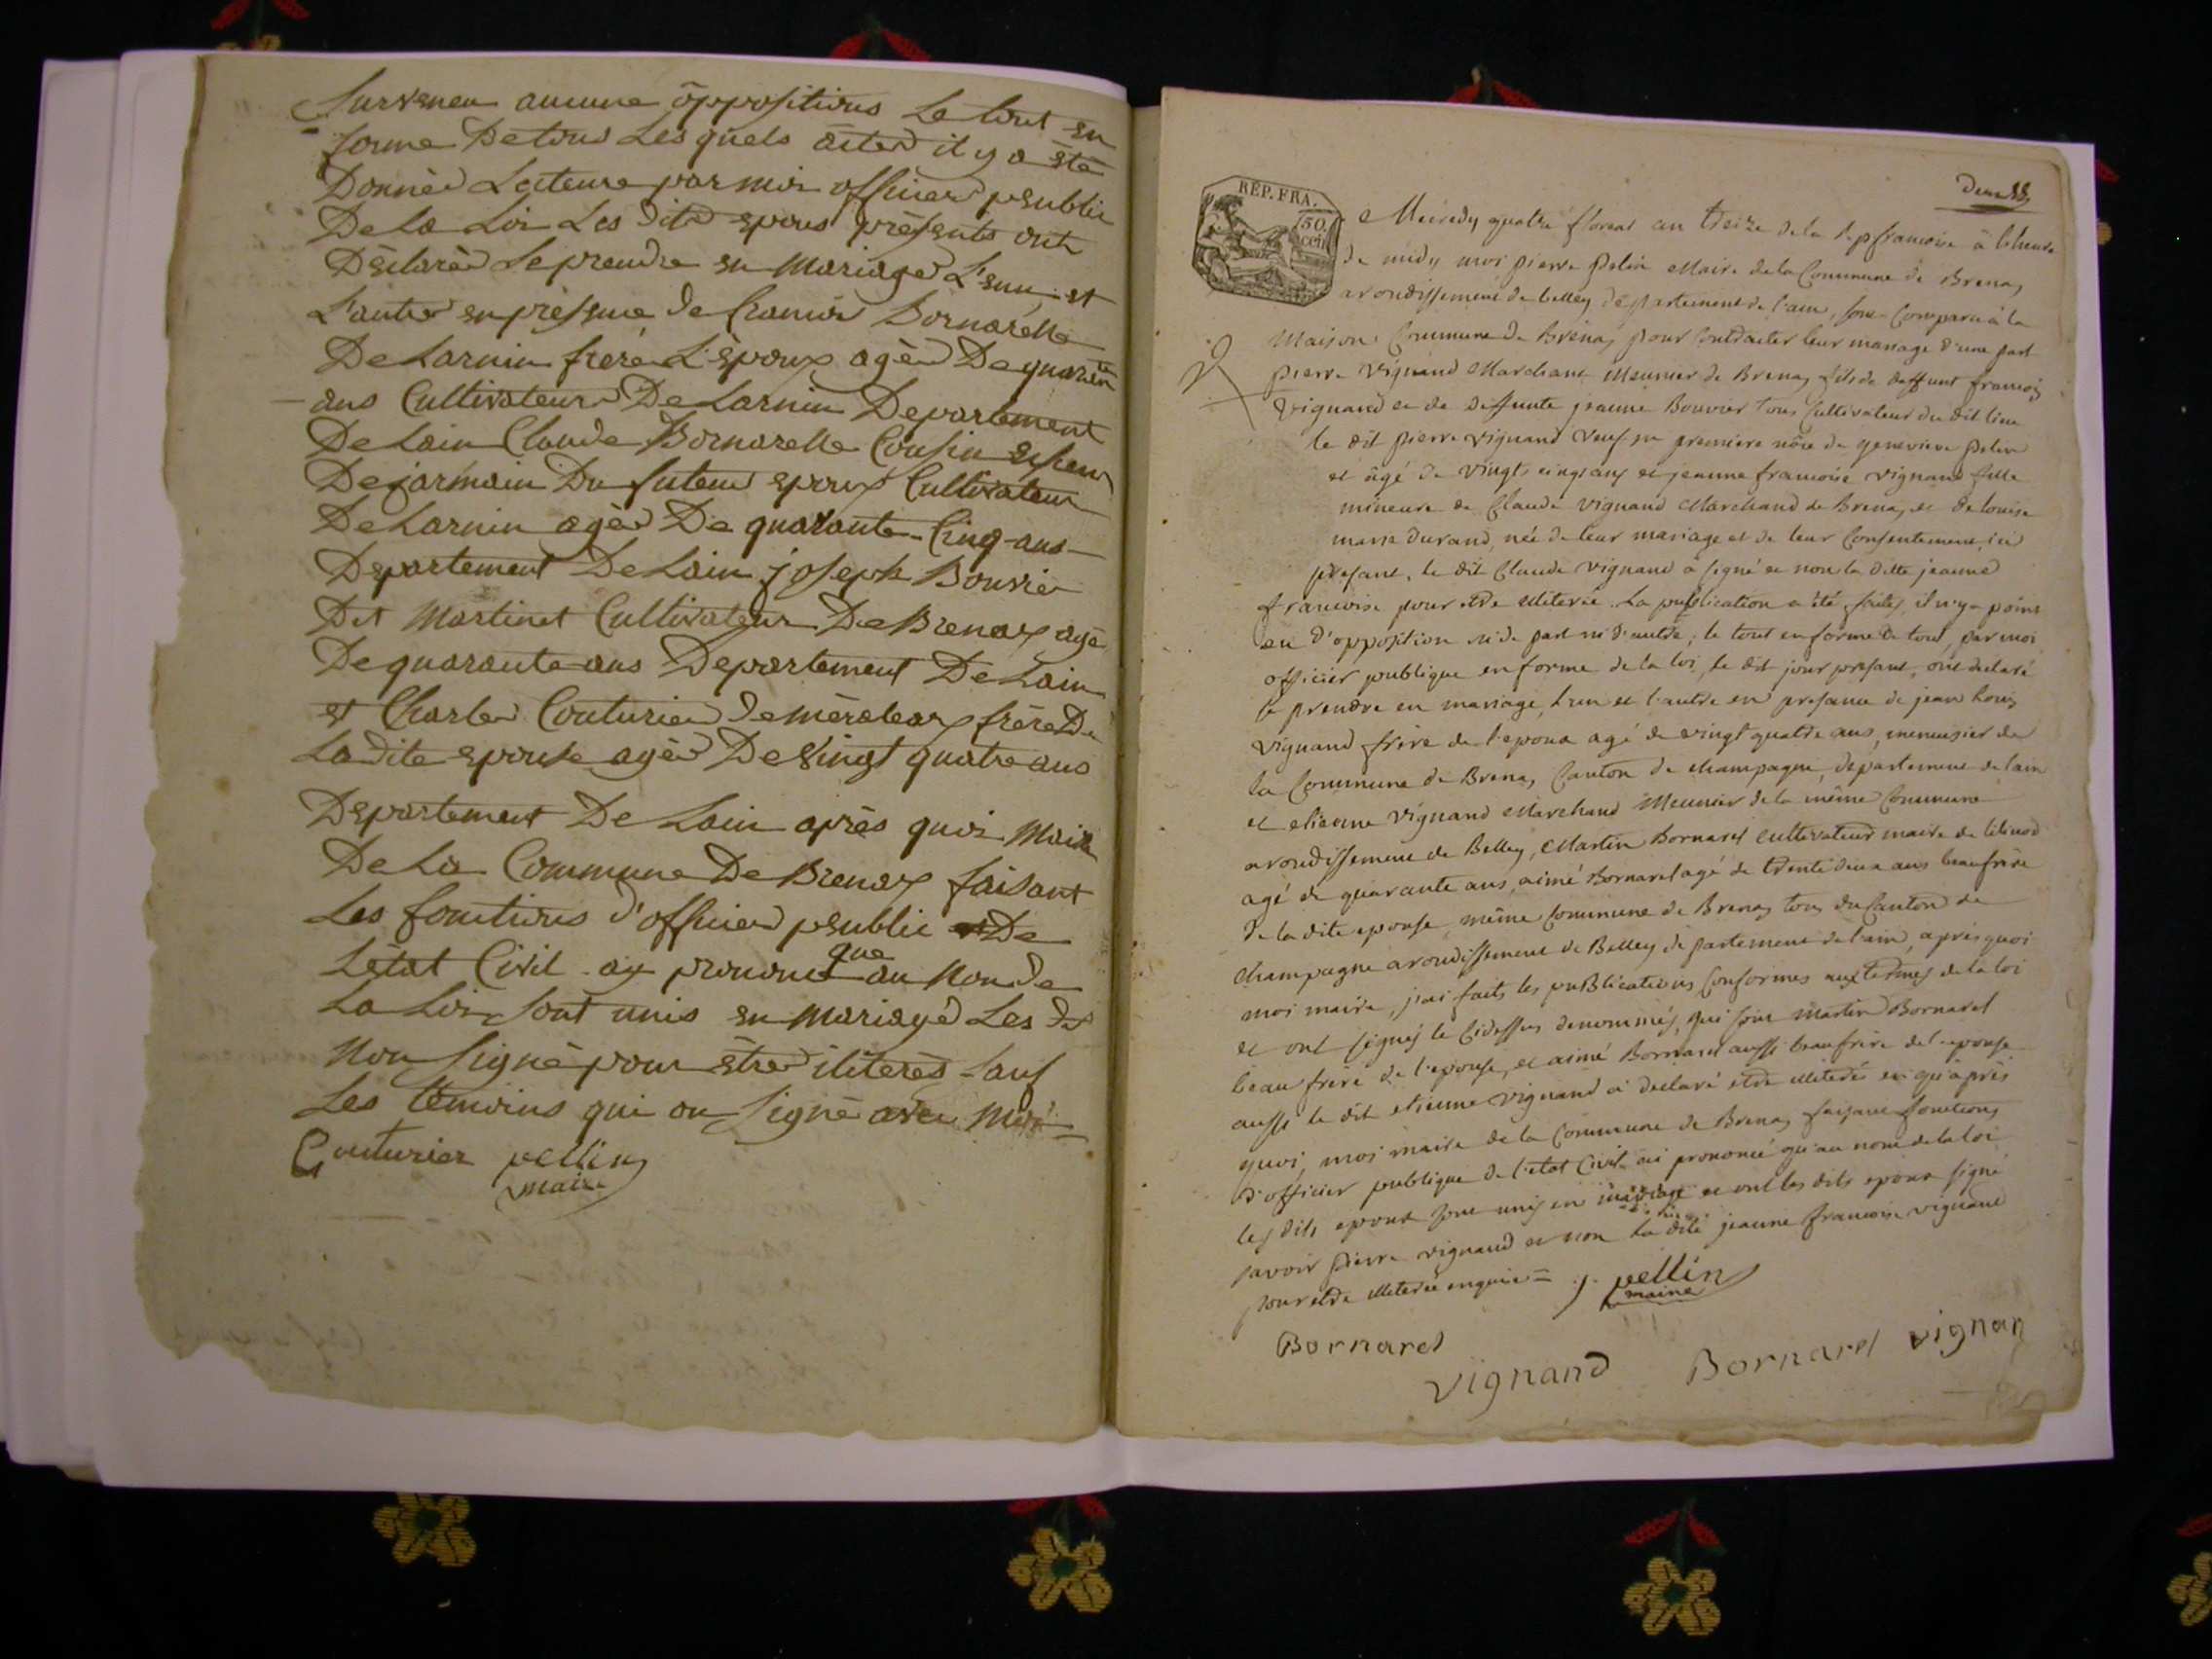 Survenen aucune oppositions Le tout en
forme De tous Les quels actes il y a été
Donnée Lecteure par moi officier peublic
De La Loi Les Dits epous présents ont
Déclarés Se prendre en Mariage L'eun et
L'autre en présence de francois Bornarelle
De Larnin frere L'époux agée De quarente
ans Cultivateur De Larnin Departement
De Lain Claude Bornarelle Cousin
De jarmain Du futeur epoux Cultivateur
De Larnin agée De quarante-Cinq-ans
Departement De Lain joseph Bouvier
Dit Martinet Cultivateur De Brenax agé
De quarante ans Departement De Lain
et Charles Couturier De méraleax frère De
La Dite epouse agée De Vingt quatre ans
Departement De Lain après quoi Maire
De La Commune De Brenax faisant
Les fonctions d'officier peublic De
L'état Civil ay prononcé que au Nom de
La Loi Sont unis en Mariage Les Dt
Non Signé pour être iliterés Sauf
Les témoins qui on Signé avec Moi
Couturier pellin
maire
REP. FRA.
50
cen
Mercredy quatre floreal an treize de la Rep francoise à l'heure
de midy moi pierre pelin Maire de la Commune de Brenas
arondissement de belley département de l'ain, sont Comparu à la
Maison Commune de Brenas pour Contracter leur mariage d'une part
pierre Vignand Marchant Meunier de Brenas fils de deffunt francois
Vignand et de deffunte jeanne Bouvier tous Cultivateur du dit lieu
le dit pierre vignand Veuf en premiere nôce de genevieve pelin
et âgé de vingt cinq ans et jeanne francoise vignand fille
mineure de Claude vignand Marchand de Brenas et de louise
marie Durand, née de leur mariage et de leur Consentement, ici
présant, le dit Claude vignand a signé et non la ditte jeanne
francoise pour etre illiterée. La publication a été faites, il n'y a point
eu d'opposition ni de part ni d'autre, le tout en forme de tout, par moi
officier publique en forme de la loi, le dit jour présant, ont declaré
se prendre en mariage, l'un et l'autre en présance de jean louis
vignand frère de l'epoux agé de vingt quatre ans, menuisier de
la Commune de Brenas Canton de champagne, departement de lain
et etienne vignand Marchand Meunier de la même Commune
arondissement de Belley, Martin Bornarel cultivateur maire de lilinod
agé de quarante ans, aimé Bornarel agé de trente deux ans beau frère
de la dite epouse, même Commune de Brenas tous du Canton de
champagne arondissement de Belley departement de l'ain, après quoi
moi maire, j'ai faits les publications Conformes aux termes de la loi
et ont signés le Cidessus denommés, qui sont martin Bornarel
beau frère de l'epouse, et aimé Bornarel aussi beau frère de l'epouse
aussi le dit etienne vignand a declaré etre illiteré ou qu'après
quoi, moi maire de la Commune de Brenas faisant fonctions
d'officier publique de l'etat Civil ai prononcé qu'au nom de la loi
les dits epoux sont unis en mariage et ont les dits epoux signé
savoir pierre vignand et non la dite jeanne francoise vignand
pour etre illiterée enquise = p. pellin
maire
Bornarel
vignand Bornarel vignan